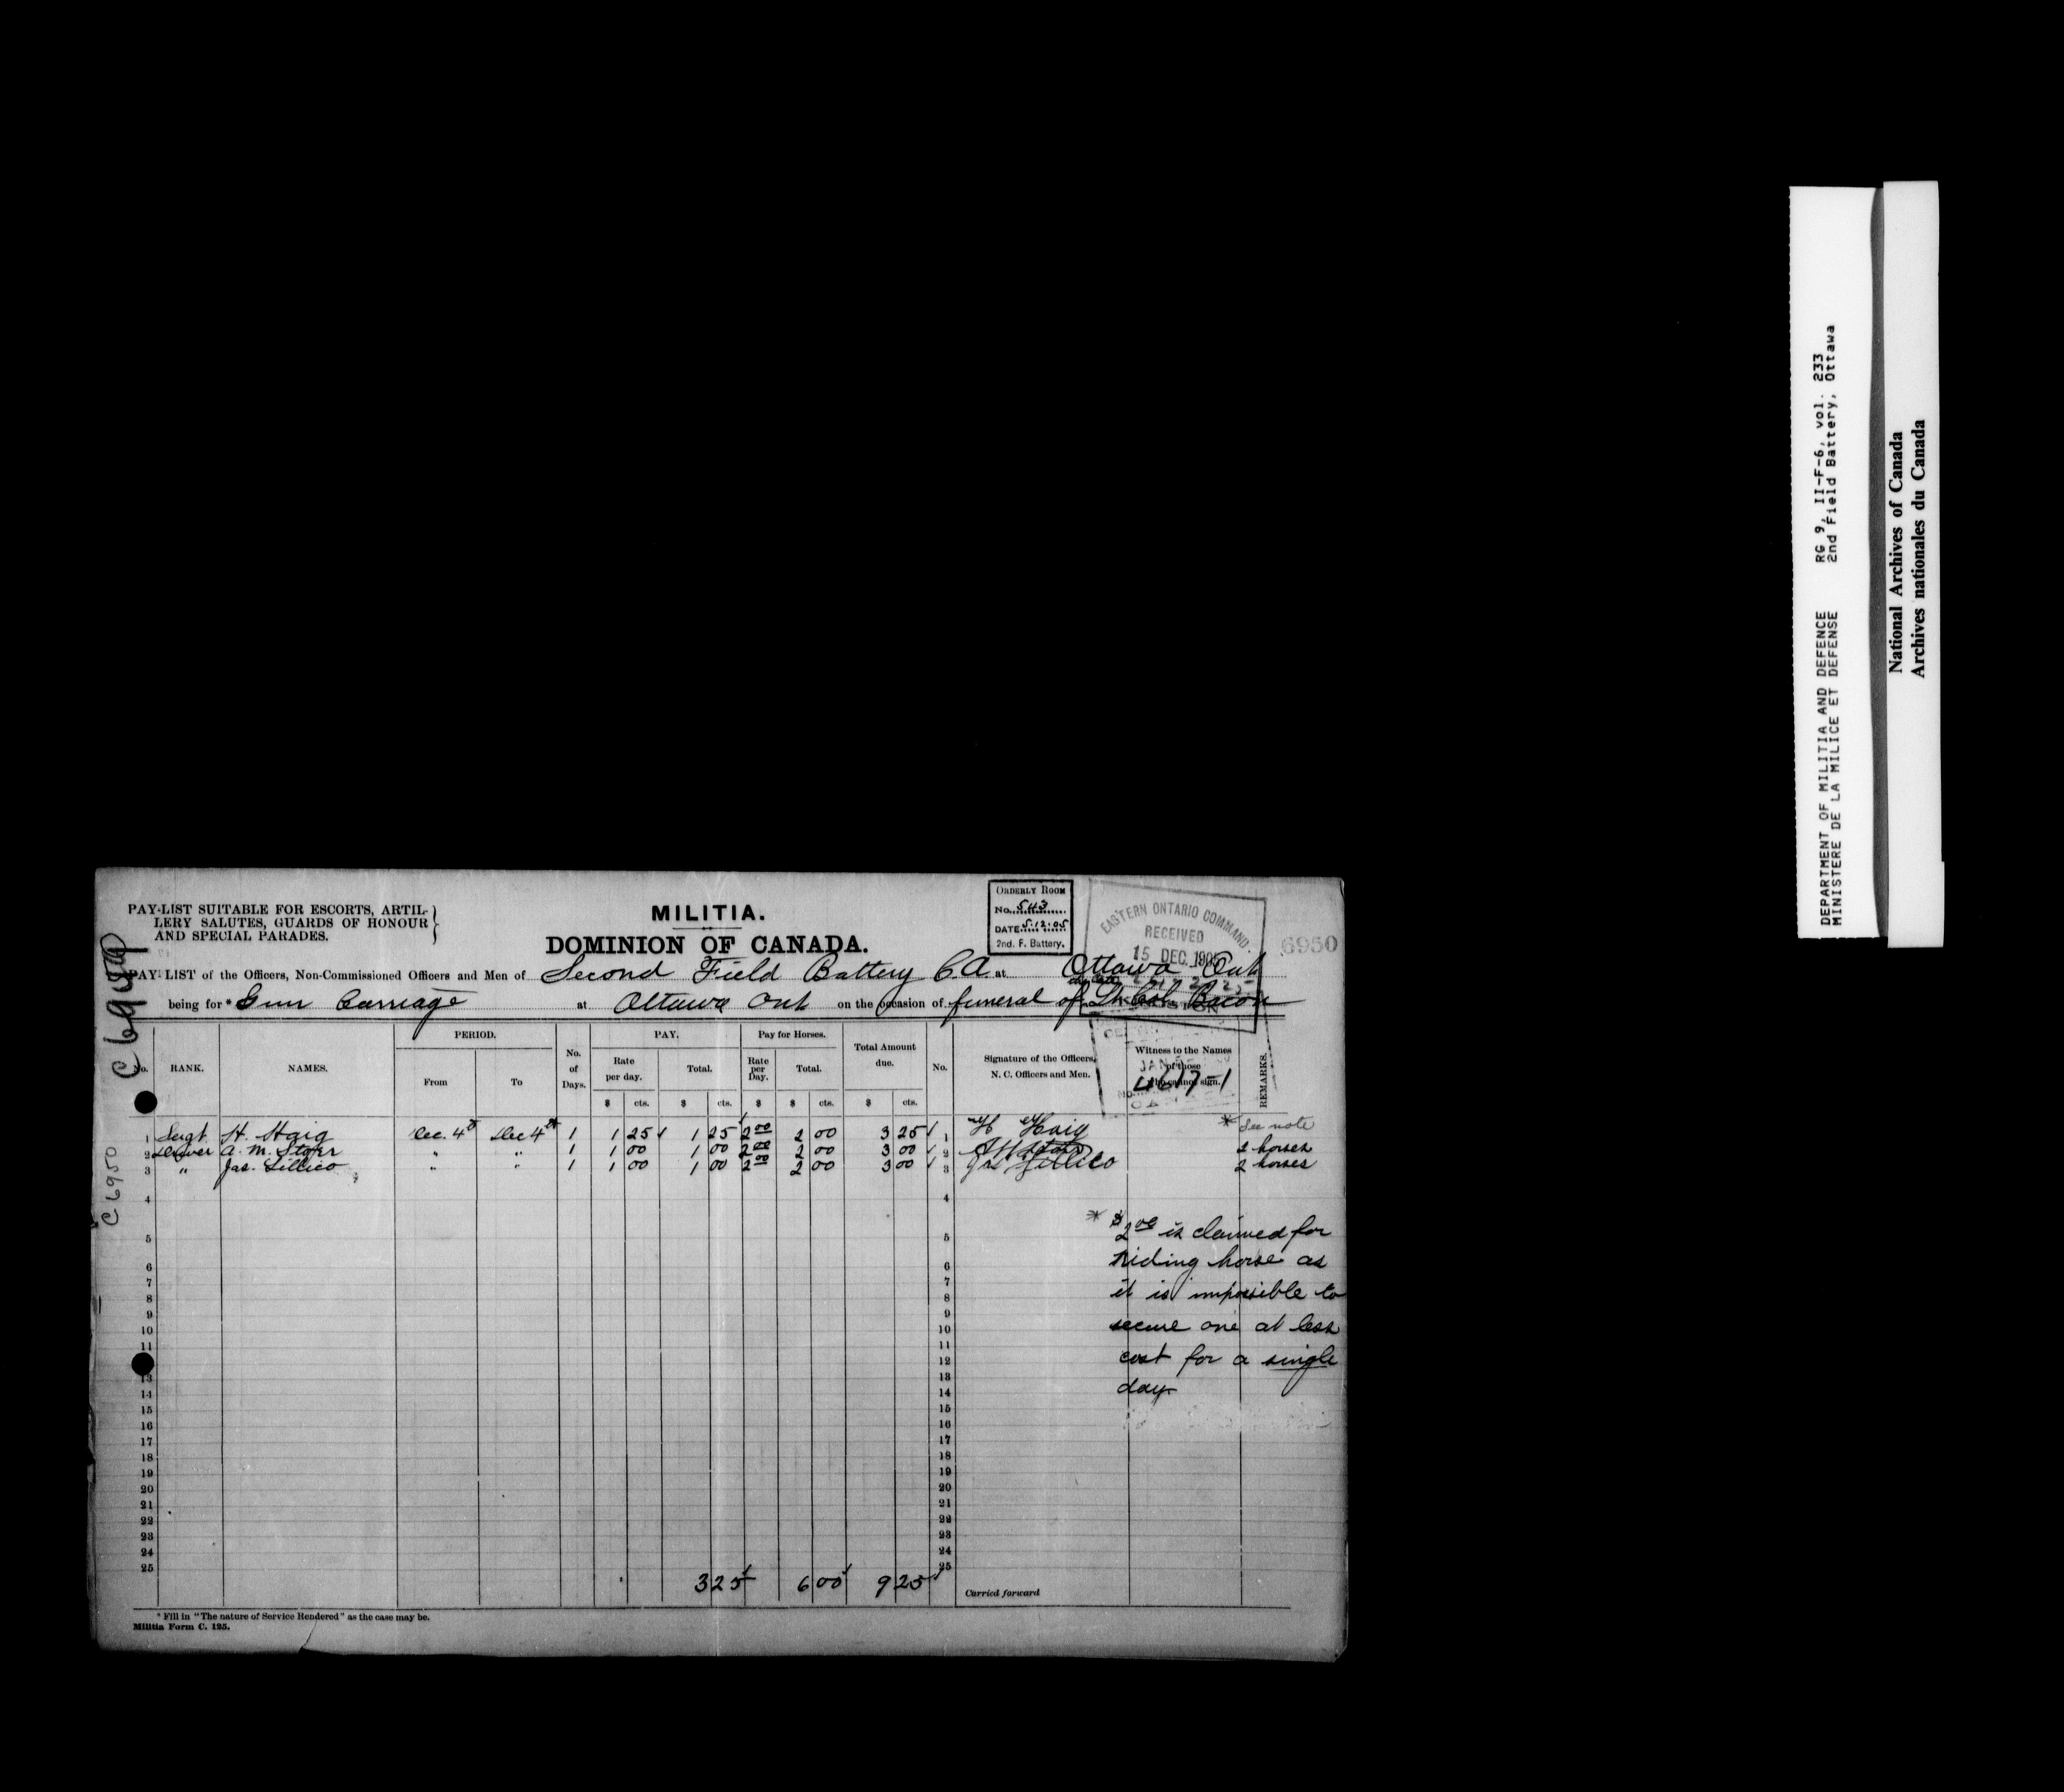 PAY-LIST SUITABLE FOR ESCORTS, ARTIL-
LERY SALUTES, GUARDS OF HONOUR
AND SPECIAL PARADES.
MILITIA.
DOMINION OF CANADA.
ORDERLY ROOM
No. 543
DATE 5.12.05
2nd. F. Battery.
EASTERN ONTARIO COMMAND.
RECEIVED
15 DEC. 1905
6950
PAY-LIST of the Officers, Non-Commissioned Officers and Men of Second Field Battery C.A. at Ottawa Ont
being for * Gun Carriage at Ottawa Ont on the occasion of funeral of Lt. Col. Bacon
C 6950
No. RANK. NAMES. PERIOD. From To No. of Days. PAY. Rate per day. Total. Pay for Horses. Rate per Day. Total. Total Amount due. No. Signature of the Officers, N. C. Officers and Men. Witness to the Names of those who cannot sign. REMARKS.
$ cts. $ cts. $ $ cts. $ cts.
4617-1
1 Sergt. H. Haig Dec. 4th Dec 4th 1 1 25 1 25 2 00 2 00 3 25 1 H Haig * See note
2 Driver A. M. Stoper " " 1 1 00 1 00 2 00 2 00 3 00 2 2 horses
3 " Jas. Lillico " " 1 1 00 1 00 2 00 2 00 3 00 3 Jas Lillico 2 horses
4 4
* $2 00 is claimed for
5 5
6 6
riding horse as
7 7
8 8
it is impossible to
9 9
10 10
secure one at less
11 11
12
cost for a single
13 13
14 14
day
15 15
16 16
17 17
18 18
19 19
20 20
21 21
22 22
23 23
24 24
25 25
3 25 6 00 9 25
Carried forward
* Fill in "The nature of Service Rendered" as the case may be.
Militia Form C. 125.
C 6950
DEPARTMENT OF MILITIA AND DEFENCE RG 9, II-F-6, vol. 233
MINISTERE DE LA MILICE ET DEFENSE 2nd Field Battery, Ottawa
National Archives of Canada
Archives nationales du Canada